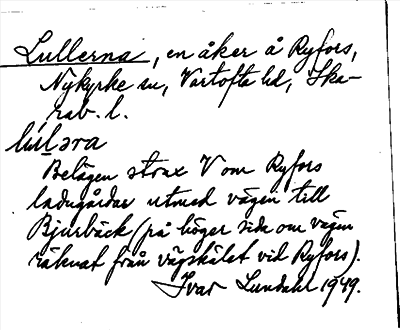 Lullerna, en åker å Ryfors,
Nykyrke sn, Vartofta hd, Ska-
rab. l.
lúl̥əra
Belägen strax V om Ryfors
ladugårdar utmed vägen till
Bjurbäck (på höger sida om vägen
räknat från vägskälet vid Ryfors).
Ivar Lundahl 1949.